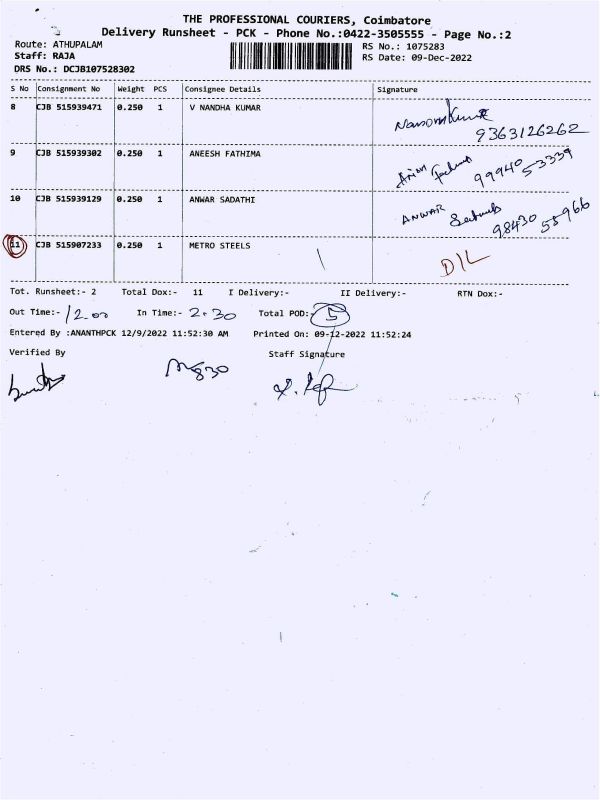 THE PROFESSIONAL COURIERS, Coimbatore
Delivery Runsheet - PCK - Phone No.:0422-3505555 - Page No.:2
Route: ATHUPALAM
RS No.: 1075283
Staff: RAJA
RS Date: 09-Dec-2022
DRS No.: DCJB107528302
S No Consignment No Weight PCS Consignee Details Signature
8 CJB 515939471 0.250 1 V NANDHA KUMAR
9363126262
9 CJB 515939302 0.250 1 ANEESH FATHIMA
99940 53339
10 CJB 515939129 0.250 1 ANWAR SADATHI ANWAR
98430 55966
11 CJB 515907233 0.250 1 METRO STEELS D/L
Tot. Runsheet:- 2 Total Dox:- 11 I Delivery:- II Delivery:- RTN Dox:-
Out Time:- 12.00 In Time:- 2.30 Total POD:- 5
Entered By :ANANTHPCK 12/9/2022 11:52:30 AM Printed On: 09-12-2022 11:52:24
Verified By Staff Signature